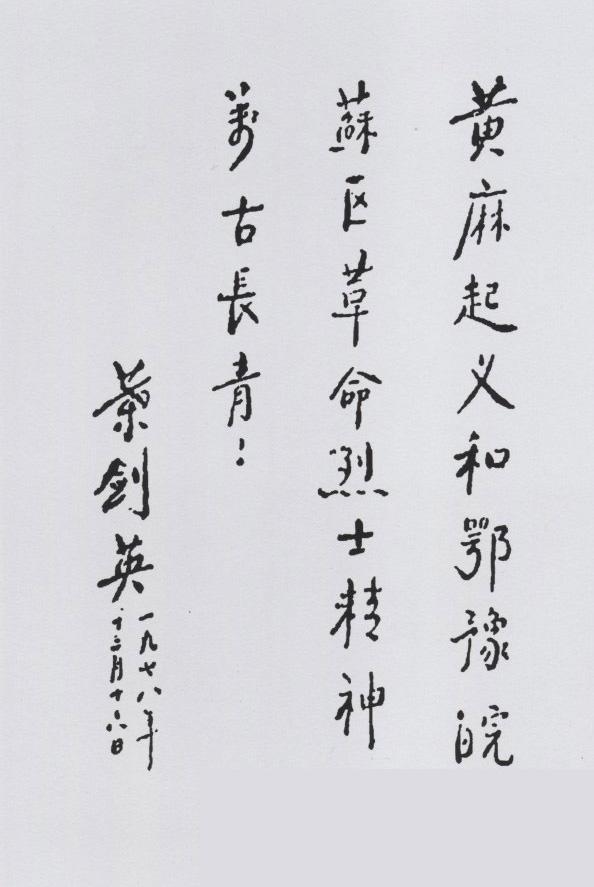 黄麻起义和鄂豫皖
蘇区革命烈士精神
萬古長青！
葉劍英
一九七八年
十二月十六日